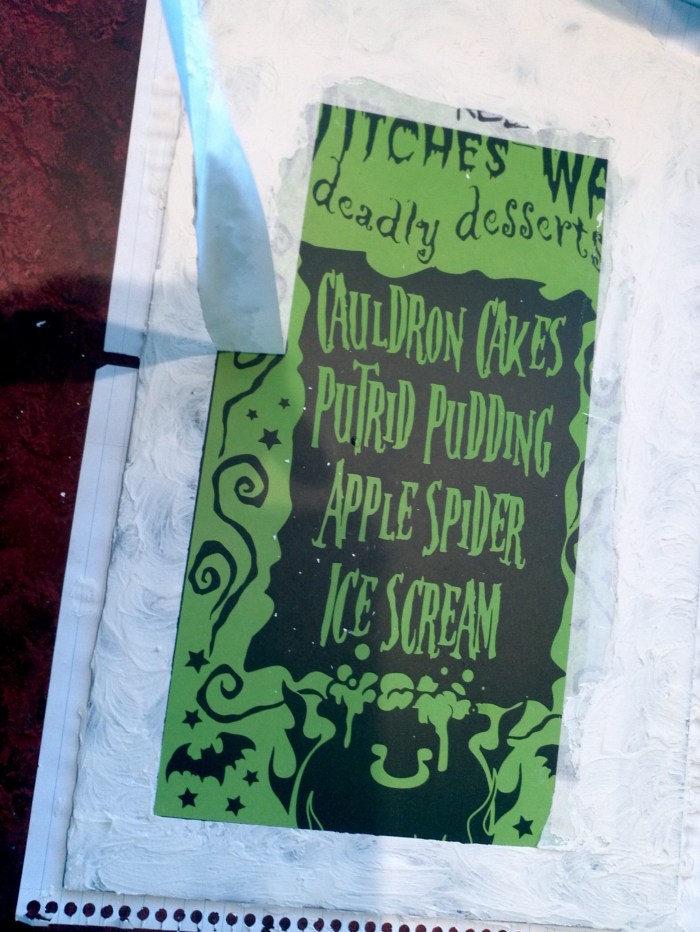 ITCHES WA
deadly desserts
CAULDRON CAKES
PUTRID PUDDING
APPLE SPIDER
ICE SCREAM